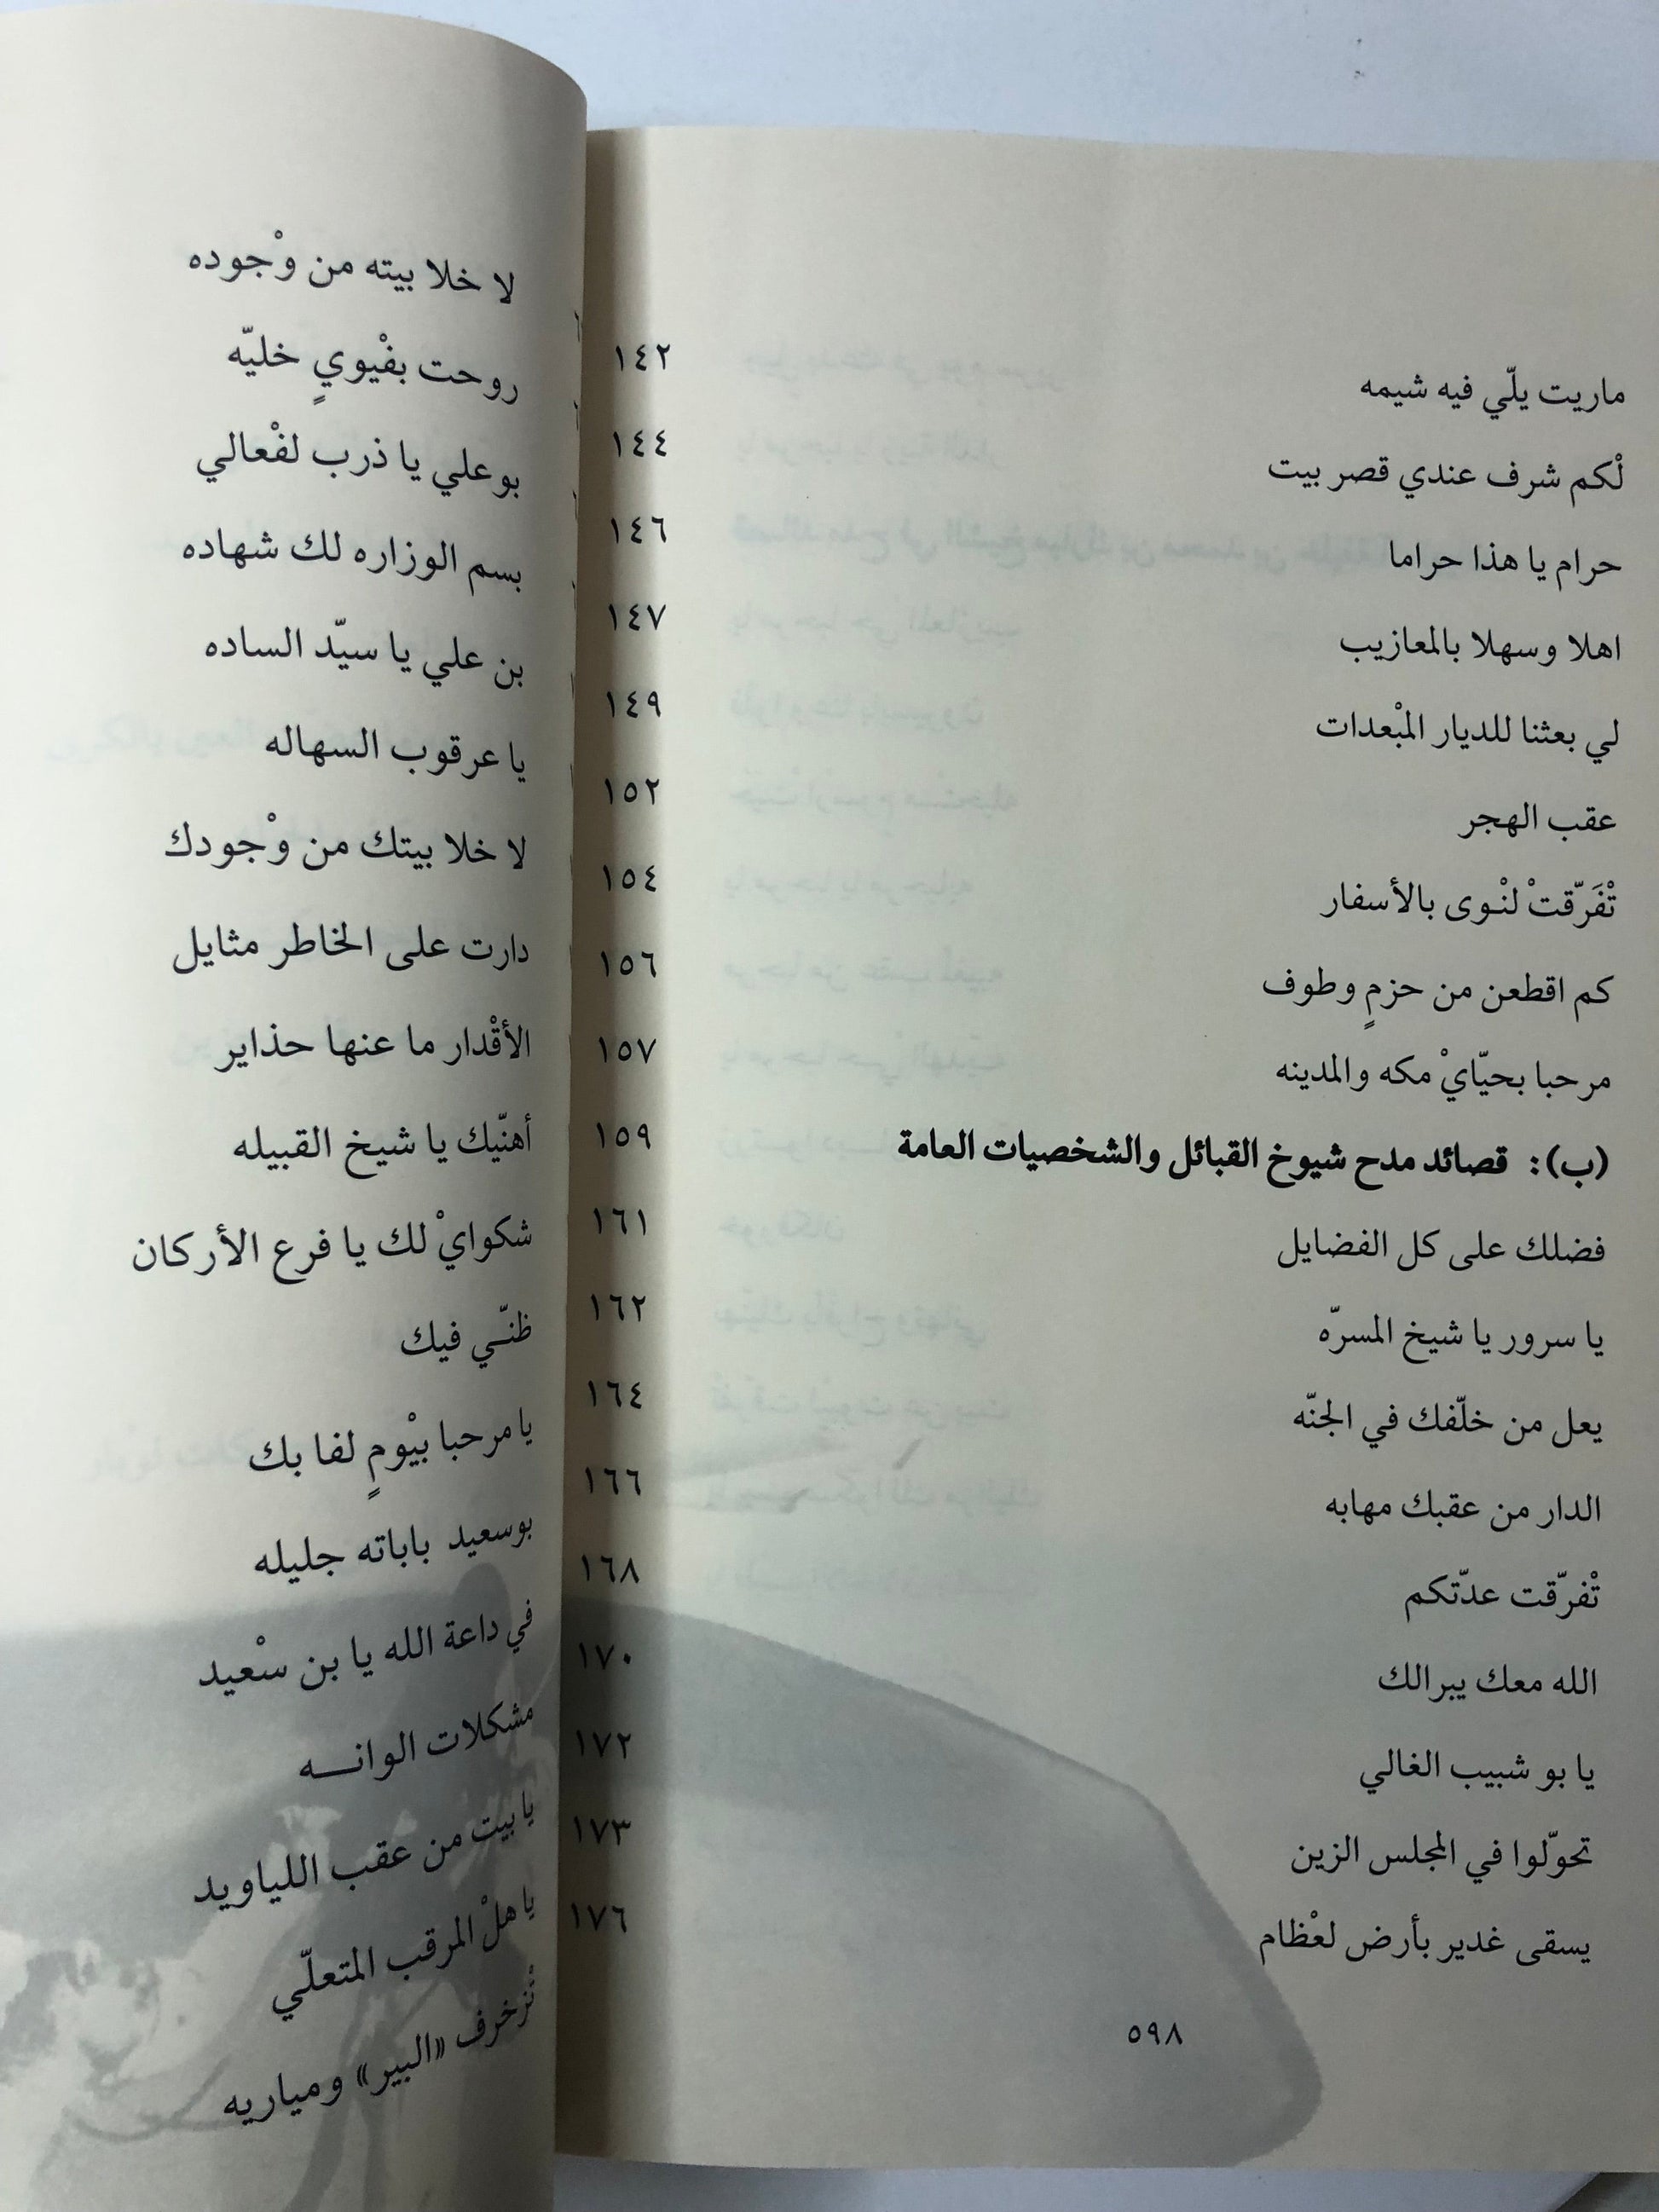 ماريت يلّي فيه شيمه ١٤٢
لْكم شرف عندي قصر بيت ١٤٤
حرام يا هذا حراما ١٤٦
اهلا وسهلا بالمعازيب ١٤٧
لي بعثنا للديار المْبعدات ١٤٩
عقب الهجر ١٥٢
تْفَرّقتْ لنْوى بالأسفار ١٥٤
كم اقطعن من حزمٍ وطوف ١٥٦
مرحبا بحيّايْ مكه والمدينه ١٥٧
(ب): قصائد مدح شيوخ القبائل والشخصيات العامة ١٥٩
فضلك على كل الفضايل ١٦١
يا سرور يا شيخ المسرّه ١٦٢
يعل من خلّفك في الجنّه ١٦٤
الدار من عقبك مهابه ١٦٦
تْفرّقت عدّتكم ١٦٨
الله معك يبرالك ١٧٠
يا بو شبيب الغالي ١٧٢
تحوّلوا في المجلس الزين ١٧٣
يسقى غدير بأرض لعْظام ١٧٦
٥٩٨
لا خلا بيته من وْجوده
روحت بفْيويٍ خليّه
بوعلي يا ذرب لفْعالي
بسم الوزاره لك شهاده
بن علي يا سيّد الساده
يا عرقوب السهاله
لا خلا بيتك من وْجودك
دارت على الخاطر مثايل
الأقْدار ما عنها حذاير
أهنّيك يا شيخ القبيله
شكوايْ لك يا فرع الأركان
ظنّي فيك
يا مرحبا بيْومٍ لفا بك
بوسعيد باباته جليله
في داعة الله يا بن سْعيد
مشكلات الوانه
يا بيت من عقب اللياويد
يا هلْ المرقب المتعلّي
تْزخرف «البير» ومياريه